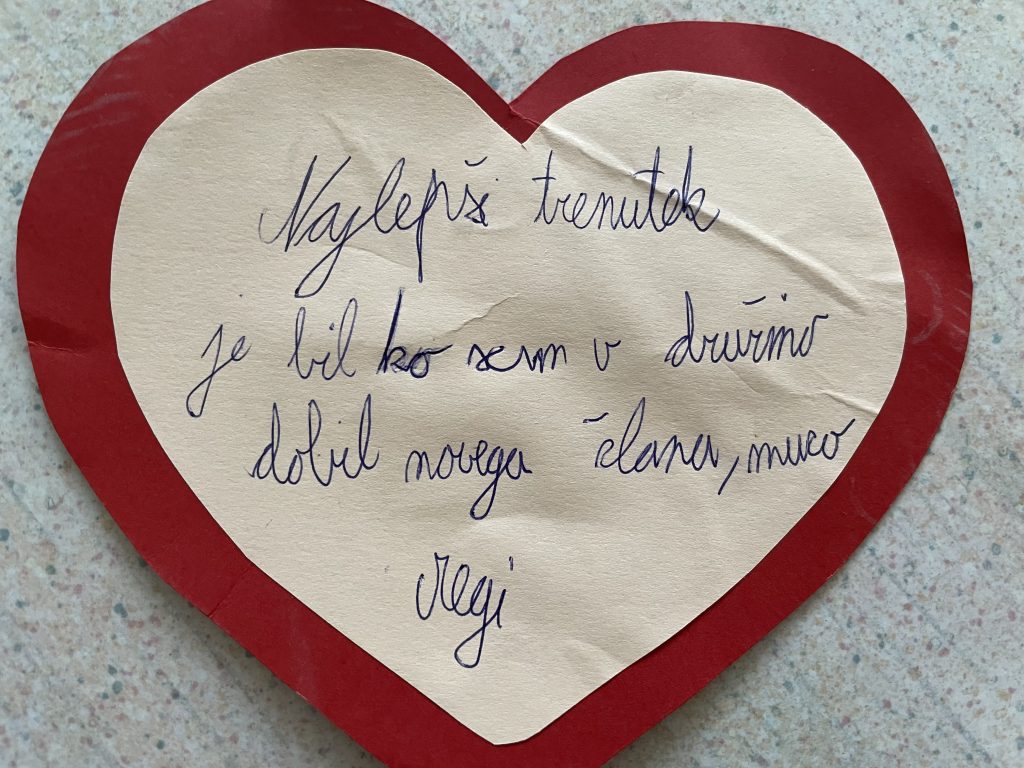 Najlepši trenutek
je bil ko sem v družino
dobil novega člana, muco
regi